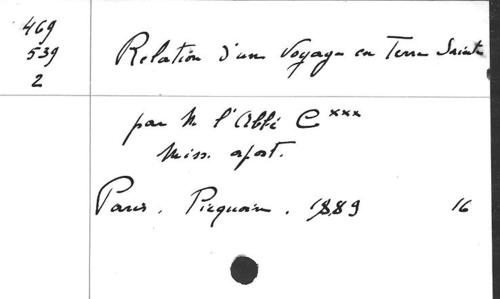 469
539
2
Relation d'un Voyage en Terre Sainte
par M l'Abbé C***
Miss. apost.
Paris. Picquoin. 1889 16